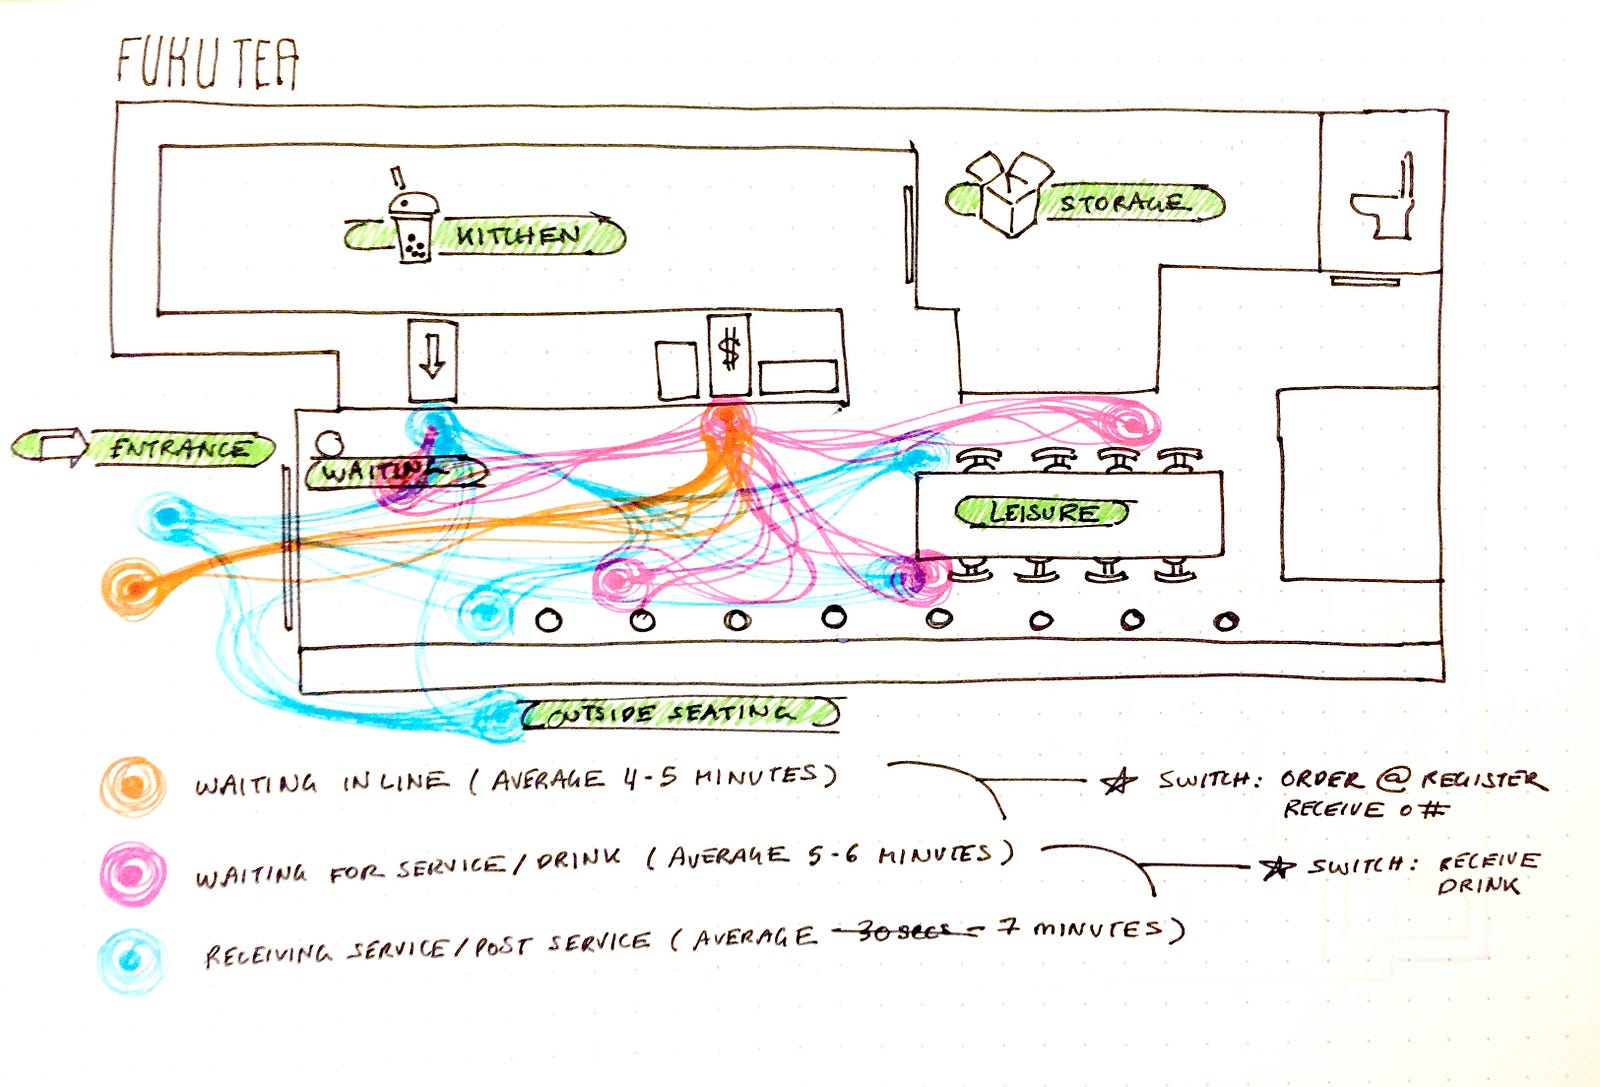 FUKU TEA
KITCHEN
STORAGE
$
ENTRANCE
WAITING
LEISURE
OUTSIDE SEATING
WAITING IN LINE (AVERAGE 4-5 MINUTES)
SWITCH: ORDER @ REGISTER
RECEIVE O#
WAITING FOR SERVICE/DRINK (AVERAGE 5-6 MINUTES)
SWITCH: RECEIVE
DRINK
RECEIVING SERVICE/POST SERVICE (AVERAGE 30 secs - 7 MINUTES)